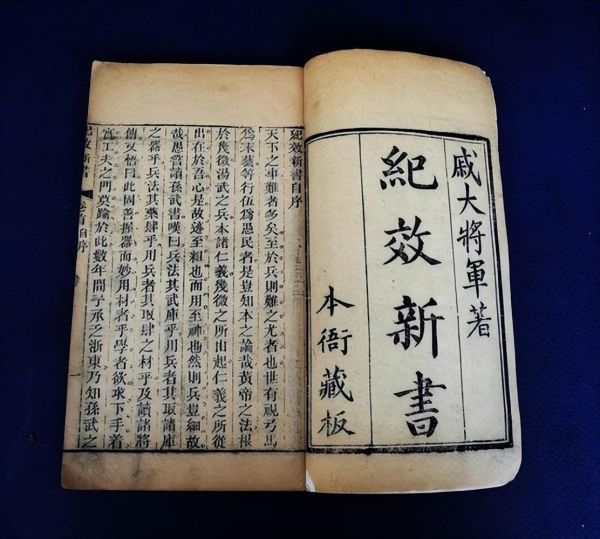 戚大將軍著
紀效新書
本衙藏板
紀效新書自序
天下之事難者多矣至於兵則難之尤者也世有視弓馬
爲末藝等行伍爲愚民者是豈知本之論哉黃帝之法根
於幾微湯武之兵本諸仁義幾微之所由起仁義之所從
出在於吾心是故迹至粗也而用至神也然則兵豈細故
哉愚嘗讀孫武書嘆曰兵法其武庫乎用兵者其取諸庫
之器乎兵法其藥肆乎用兵者其取肆之材乎及讀諸將
傳又悟曰此固善握器而妙用材者乎學者欲求下手着
實工夫之門莫踰於此數年間予承乏浙東乃知孫武之
紀效新書
卷首自序